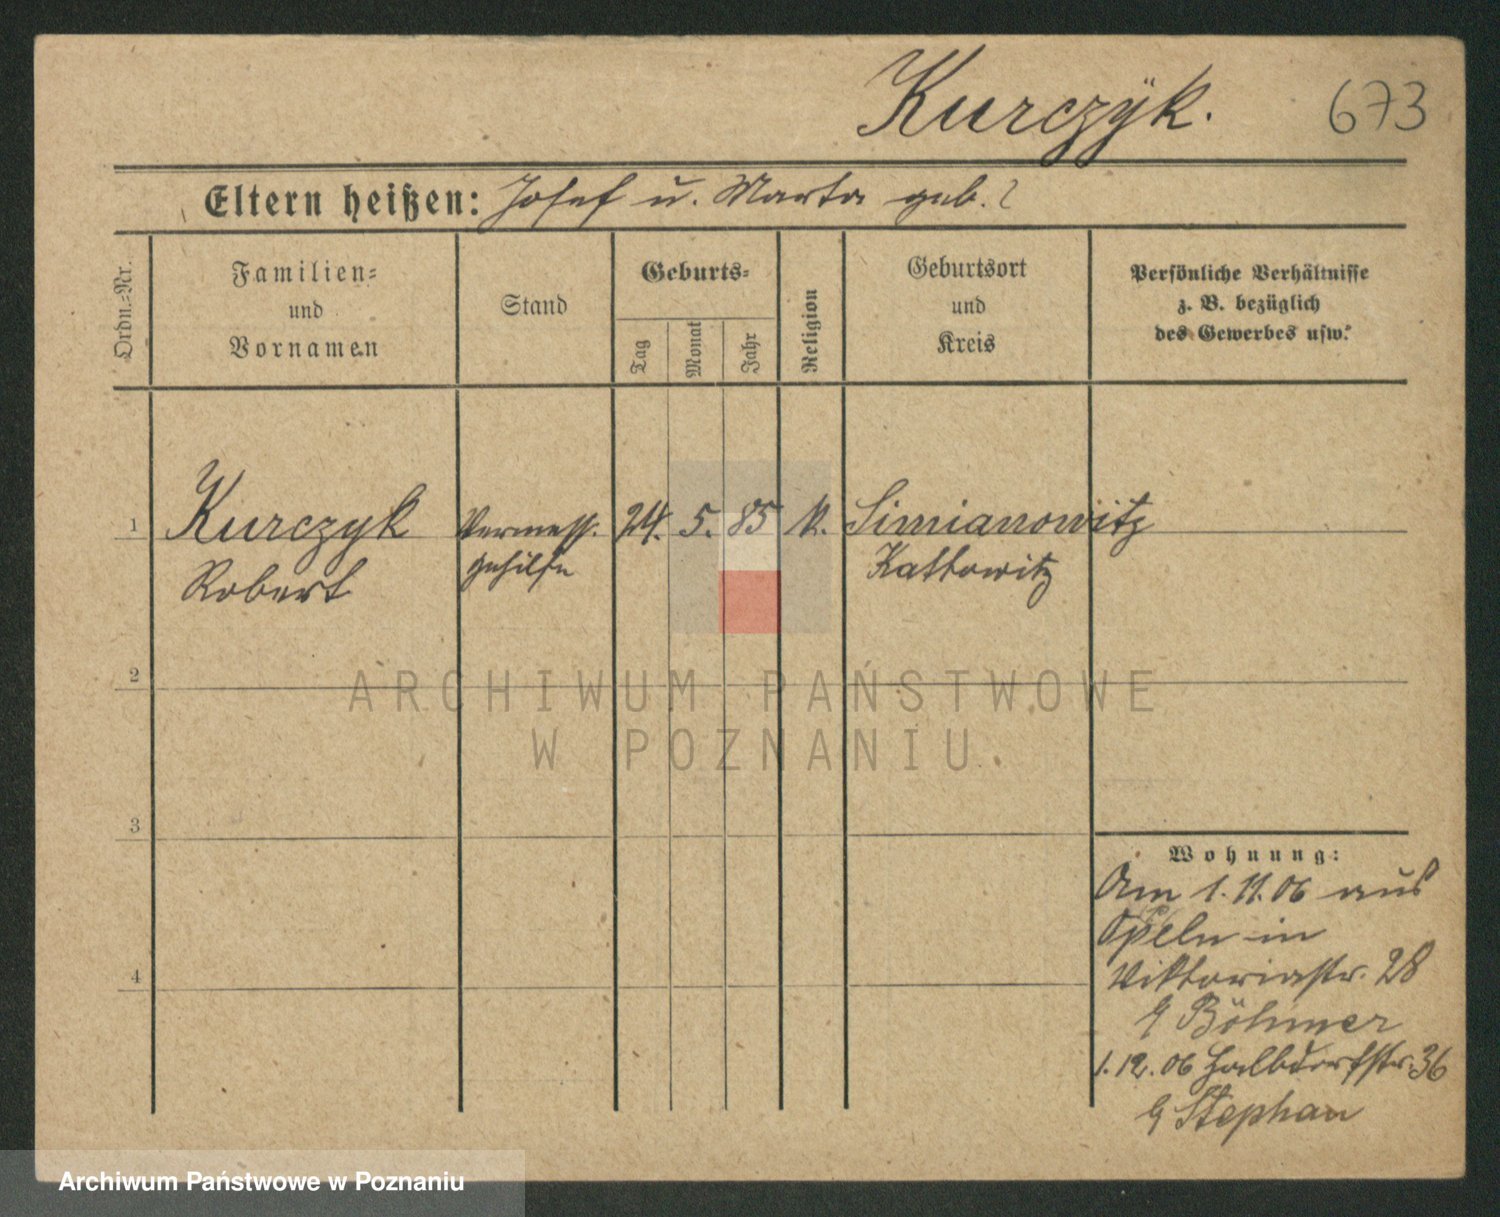 Kurczÿk. 673
Eltern heißen: Josef u. Marta geb. ?
Ordn.=Nr.
Familien=
und
Vornamen
Stand
Geburts=
Tag
Monat
Jahr
Religion
Geburtsort
und
Kreis
Persönliche Verhältnisse
z. B. bezüglich
des Gewerbes usw.
1 Kurczyk Vermess. 24. 5. 85 k. Simianowitz
Robert gehilfe Kattowitz
2
ARCHIWUM PAŃSTWOWE
W POZNANIU
3
Wohnung:
Am 1.11.06 aus
Opeln in
Viktoriastr. 28
b/ Böhmer
4
1.12.06 Halbdorfstr. 36
b/ Stephan
Archiwum Państwowe w Poznaniu